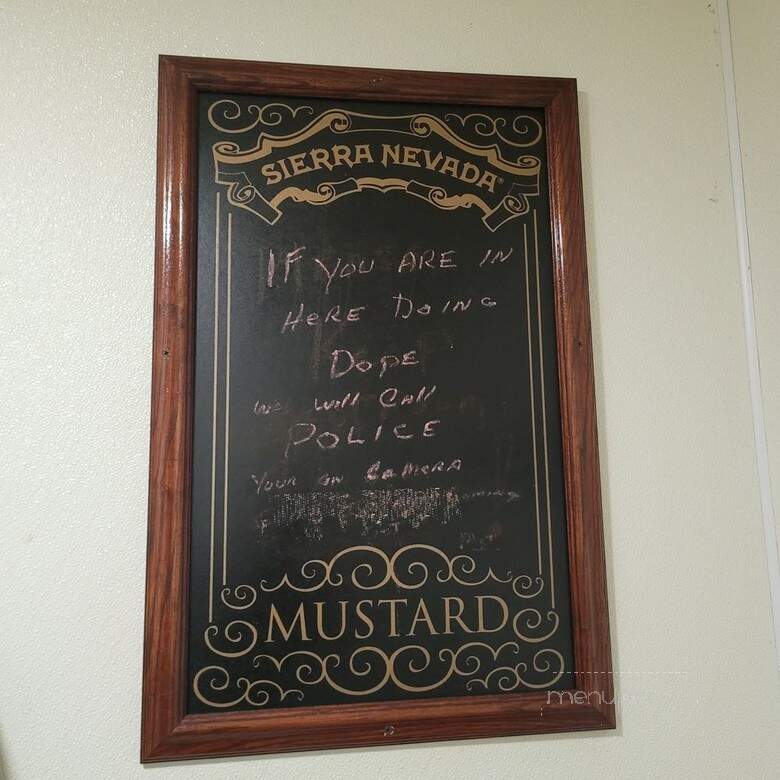 SIERRA NEVADA®
IF YOU ARE IN
HERE DOING
DOPE
WE WILL CALL
POLICE
YOUR ON CAMERA
MUSTARD
menu